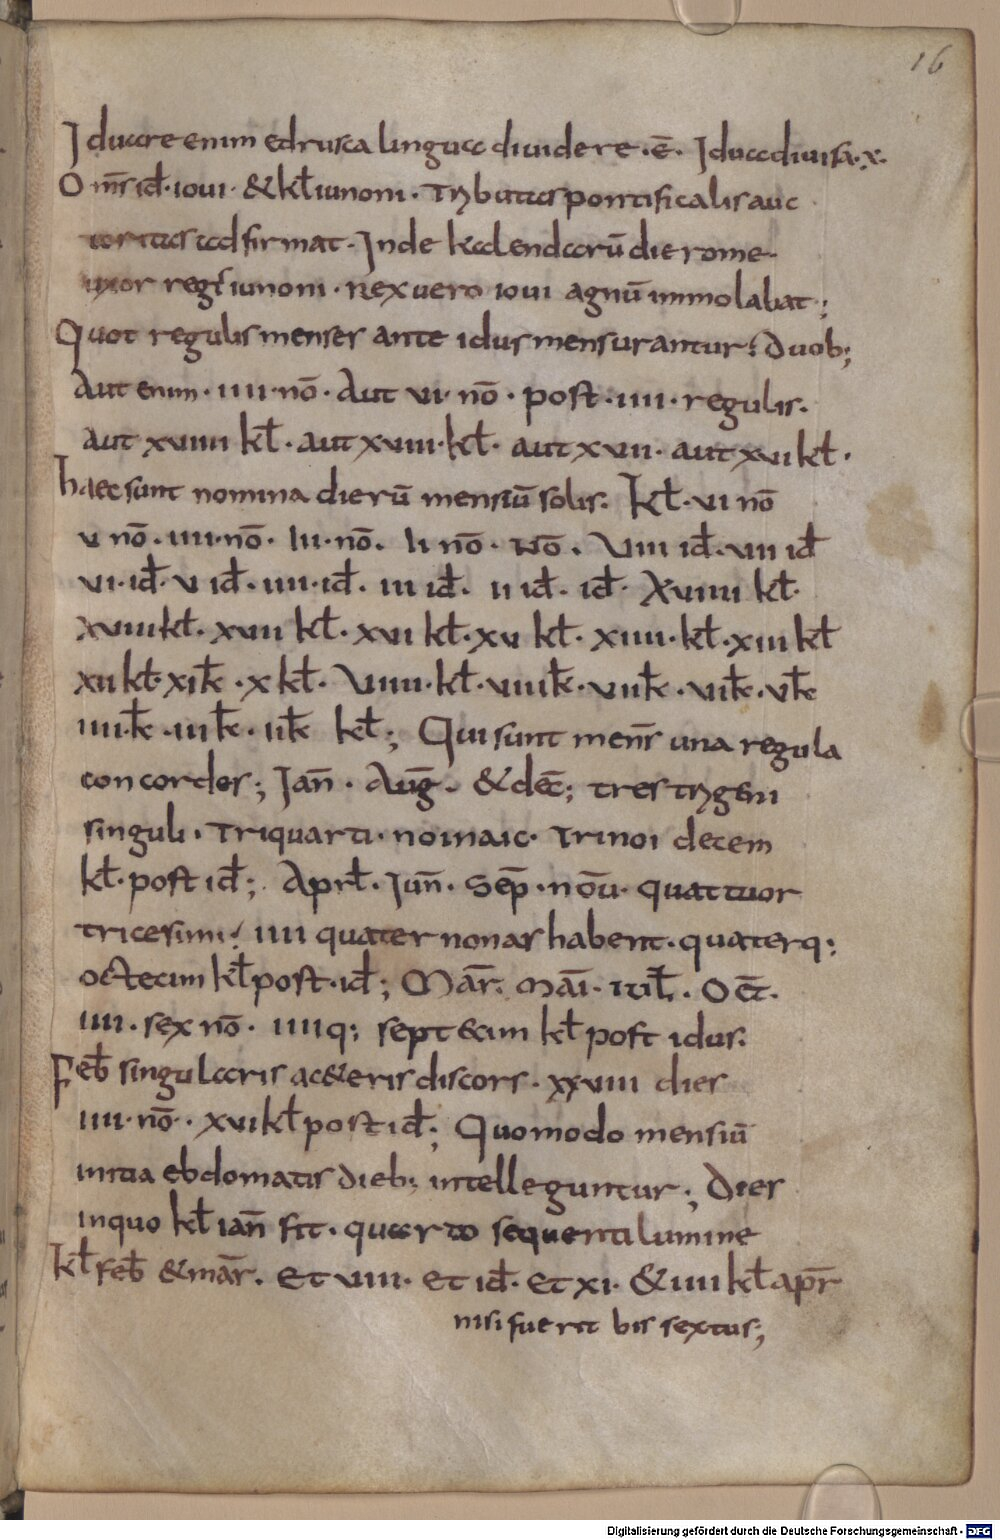 16
Iduare enim edrusca lingua diuidere · ē · Idua diuisa · x ·
Om̄s id̄ · ioui · & kl̄ iunoni · Trybutus pontificalis auc
toritas adfirmat · Inde kalendarū die rome
uxor regis iunoni · Rex uero ioui agnū immolabat ;
Quot regulis menses ante idus mensurantur ? Duob;
Aut enim · iiii · nō · Aut vi · nō · post · iiii · regulis ·
aut xviiii kl̄ · aut xviii · kl̄ · aut xvii · aut xvi kl̄ ·
haec sunt nomina dierū mensiū solis · kl̄ · vi nō
v nō · iiii · nō · iii · nō · ii nō · Nō · Viii id̄ · vii id̄
vi · id̄ · v id̄ · iiii · id̄ · iii id̄ · ii id̄ · id̄ · Xviiii kl̄ ·
xviii kl̄ · xvii kl̄ · xvi kl̄ · xv kl̄ · xiiii · kl̄ · xiii kl̄
xii kl̄ · xi kl̄ · x kl̄ · Viiii · kl̄ · viii kl̄ · vii kl̄ · vi kl̄ · v kl̄
iiii · kl̄ · iii kl̄ · ii kl̄ kl̄ ; Qui sunt mens̄ una regula
concordes ; Ian̄ · Auḡ · & dec̄ ; tres trygeni
singuli · Triquarti · noinaic · Trinoi decem
kl̄ · post id̄ ; Aprl̄ · Iun̄ · Sep̄ · nōu · quattuor
tricesimi ; iiii quater nonas habent · quaterq;
octecim kl̄ post · id̄ ; Mar̄ · Mai · iuil̄ · Oct̄ ·
iiii · sex nō · iiiiq; sept&im kl̄ post idus ·
Feb̄ singularis ac&eris discors · xxviii dies
iiii · nō · xvi kl̄ post id̄ ; Quomodo mensiū
initia ebdomatis dieb; intelleguntur ; Dies
inquo kl̄ ian̄ fit · quarto sequenti lumine
kl̄ feb̄ & mar̄ · Et viii · et id̄ · Et xi · & iiii kl̄ apr̄
nisi fuerit bis sextus ;
Digitalisierung gefördert durch die Deutsche Forschungsgemeinschaft - DFG